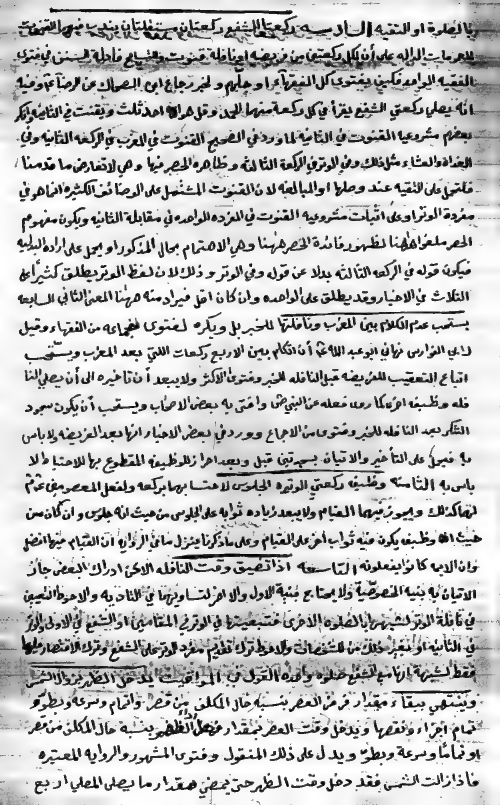 بالصلوة او التقية السادسه ركعتا الشفع ركعتان يستحب فيها القنوت
على أن لكل ركعتين من فريضه او نافلة قنوت
الفقيه الواحد فكيف بفتوى كل الفقهاء او جلهم ولخبر رجاء ابن ابي الضحاك عن الرضا ع وفيه
انه يصلي ركعتي الشفع يقرأ في كل ركعة منها الحمد وقل هو الله احد ثلث ويقنت في الثانية
بعضهم مشروعية القنوت في الثانية لما ورد في الصحيح القنوت في المغرب في الركعة الثانية وفي
الغداة والعشاء مثل ذلك وفي الوتر في الركعة الثالثه وظاهره الحصر فيها وهي لا تعارض ما قدمنا
فلتحمل على التقية عند وصلها او المبالغه لان القنوت المشتمل على الوضائف الكثيرة انما هو في
مفردة الوتر او على اثبات مشروعيه القنوت في المفرده الواحده في مقابلة الثانيه ويكون مفهوم
الحصر ملغى هيهنا لظهور فائدة الحصر ههنا وهي الاهتمام بحال المذكور او يحمل على اراده البدليه
فيكون قوله في الركعه الثالثه بدلا عن قوله وفي الوتر وذلك لان لفظ الوتر يطلق كثيرا على
الثلاث في الاخبار وقد يطلق على الواحده وان كان اقل فيراد منه ههنا المعنى الثاني السابعه
يستحب عدم الكلام بين المغرب ونافلتها للخبر بل ويكره لفتوى جماعه من الفقهاء وقيل
لابي الفوارس نهاني ابو عبد الله ع أن اتكلم بين الاربع ركعات اللتي بعد المغرب ويستحب
ايقاع التعقيب للفريضه قبل النافله للخبر وفتوى الاكثر ولا يبعد أن تاخيره الى أن يصلي النا
فله وظيفه اخرى كما روى فعله عن النبي ص وافتى به بعض الاصحاب ويستحب أن يكون سجود
الشكر بعد النافله للخبر وفتوى من الاجماع وورد في بعض الاخبار انها بعد الفريضه ولا باس
به فيحمل على التأخير والاتيان بسجدتين قبل وبعد احراز للوظيفه المقطوع بها للاحتياط ولا
باس به الثامنه وظيفه ركعتي الوتيره الجلوس لاحتسابهما بركعه ولفعل المعصوم
لها كذلك ويجوز فيها القيام ولا يبعد زياده ثوابه على الجلوس من حيث انه جلوس وان كان من
حيث انه وظيفه يكون فيه ثواب آخر على القيام وعلى ما ذكرنا ينزل ما في الروايه ان القيام فيها افضل
وان الائمه كانوا يفعلونه التاسعه اذا تضيق وقت النافله الا عن ادراك البعض جاز
الاتيان به بنيه الخصوصية ولا يحتاج بنية الاول والاخر لتساويهما في التأديه والاحوط التعيين
في نافلة الوتر لشبهها بالصلوه الاخرى فتتعينها في الوتر في المقامين او الشفع في الاولى والوتر
في الثانيه او بغير ذلك من المشخصات والاحوط ترك تقديم مفرده الوتر على الشفع وترك الاقتصار عليها
فقط لشبهة انها مع الشفع صلوه واحده القول في المواقيت يدخل الظهر بزوال الشمس
وينتهي ببقاء مقدار فرض العصر بنسبه حال المكلف من قصر واتمام وسرعه وبطؤ
تمام اجزاء ونقصها ويدخل وقت العصر بمقدار فرض الظهر بنسبه حال المكلف من قصر
او تماما وسرعة وبطؤ ويدل على ذلك المنقول وفتوى المشهور والروايه المعتبره
فاذا زالت الشمس فقد دخل وقت الظهر حتى يمضي مقدار ما يصلي المصلي اربع